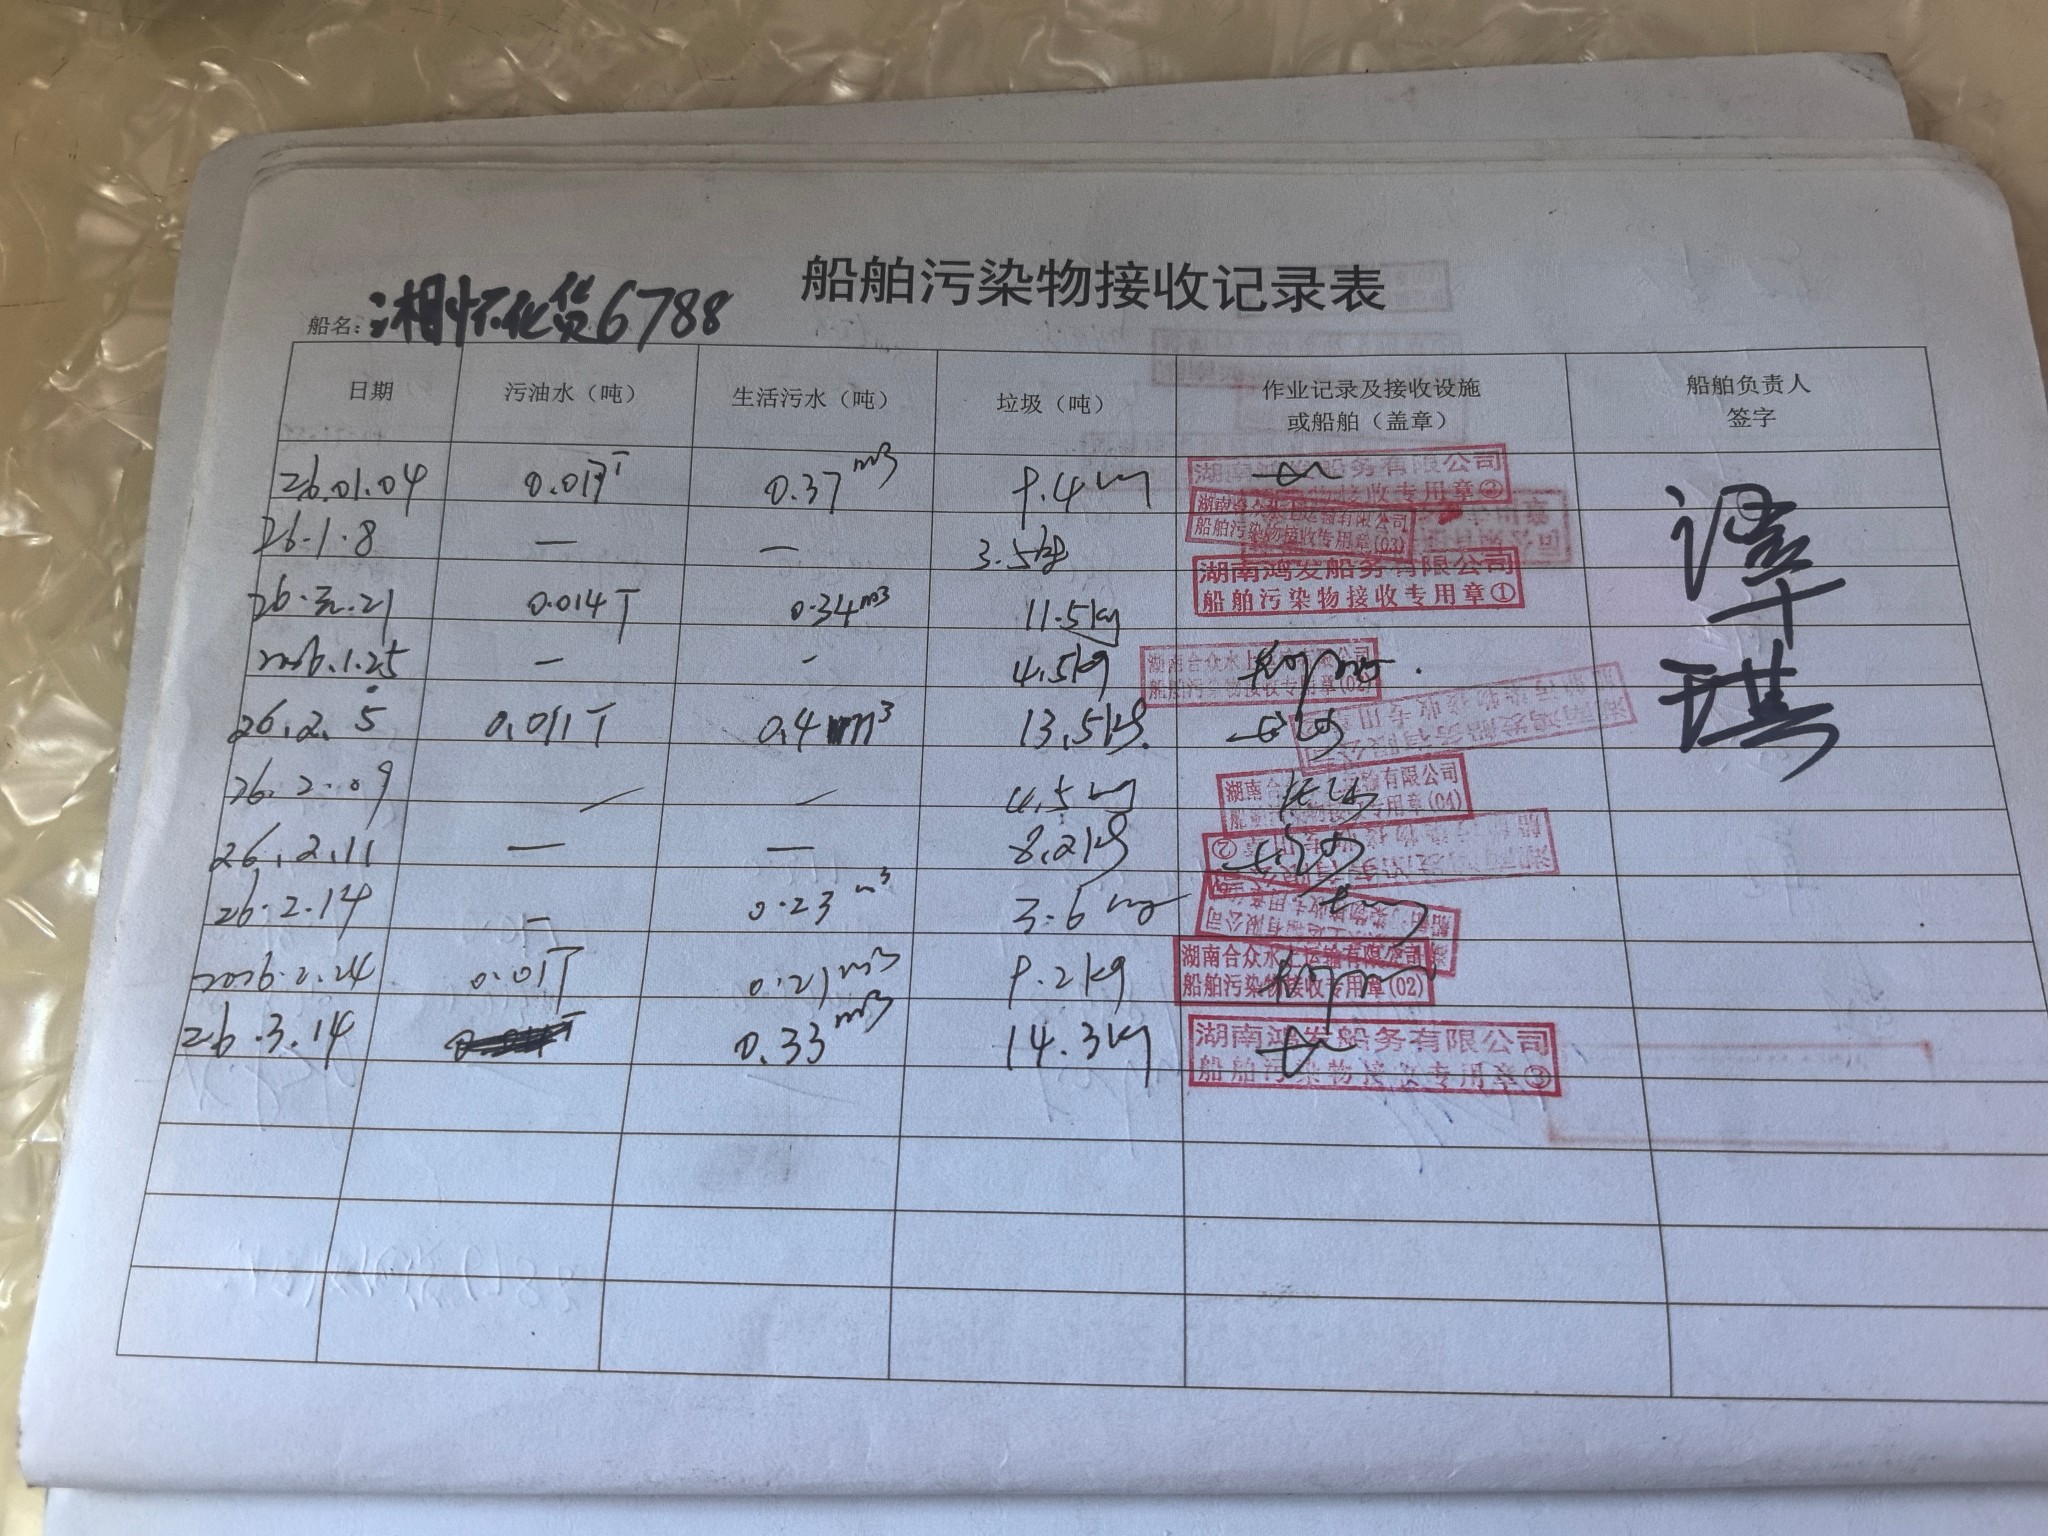 船舶污染物接收记录表
船名：湘怀化货6788
日期 污油水（吨） 生活污水（吨） 垃圾（吨） 作业记录及接收设施或船舶（盖章） 船舶负责人签字
26.01.04 0.37 m3 9.4 湖南鸿发船务有限公司
接收专用章
26.1.8 — — 3.5kg 船舶污染物接收专用章(03)
湖南鸿发船务有限公司
船舶污染物接收专用章①
26.元.21 0.014T 0.34m3 11.5kg
2026.1.25 — - 4.5kg 湖南合众水上
船舶污染物接收专用章
26.2.5 0.011T 0.4 m3 13.5kg
26.2.09 — — 4.5 湖南合众水上运输有限公司
专用章(04)
26.2.11 — — 8.2kg
26.2.14 - 0.23 m3 3.6
2026.2.24 0.01T 0.21m3 9.2kg 湖南合众水上运输有限公司
船舶污染物接收专用章(02)
26.3.14 0.33 m3 14.3kg 湖南鸿发船务有限公司
船舶污染物接收专用章③